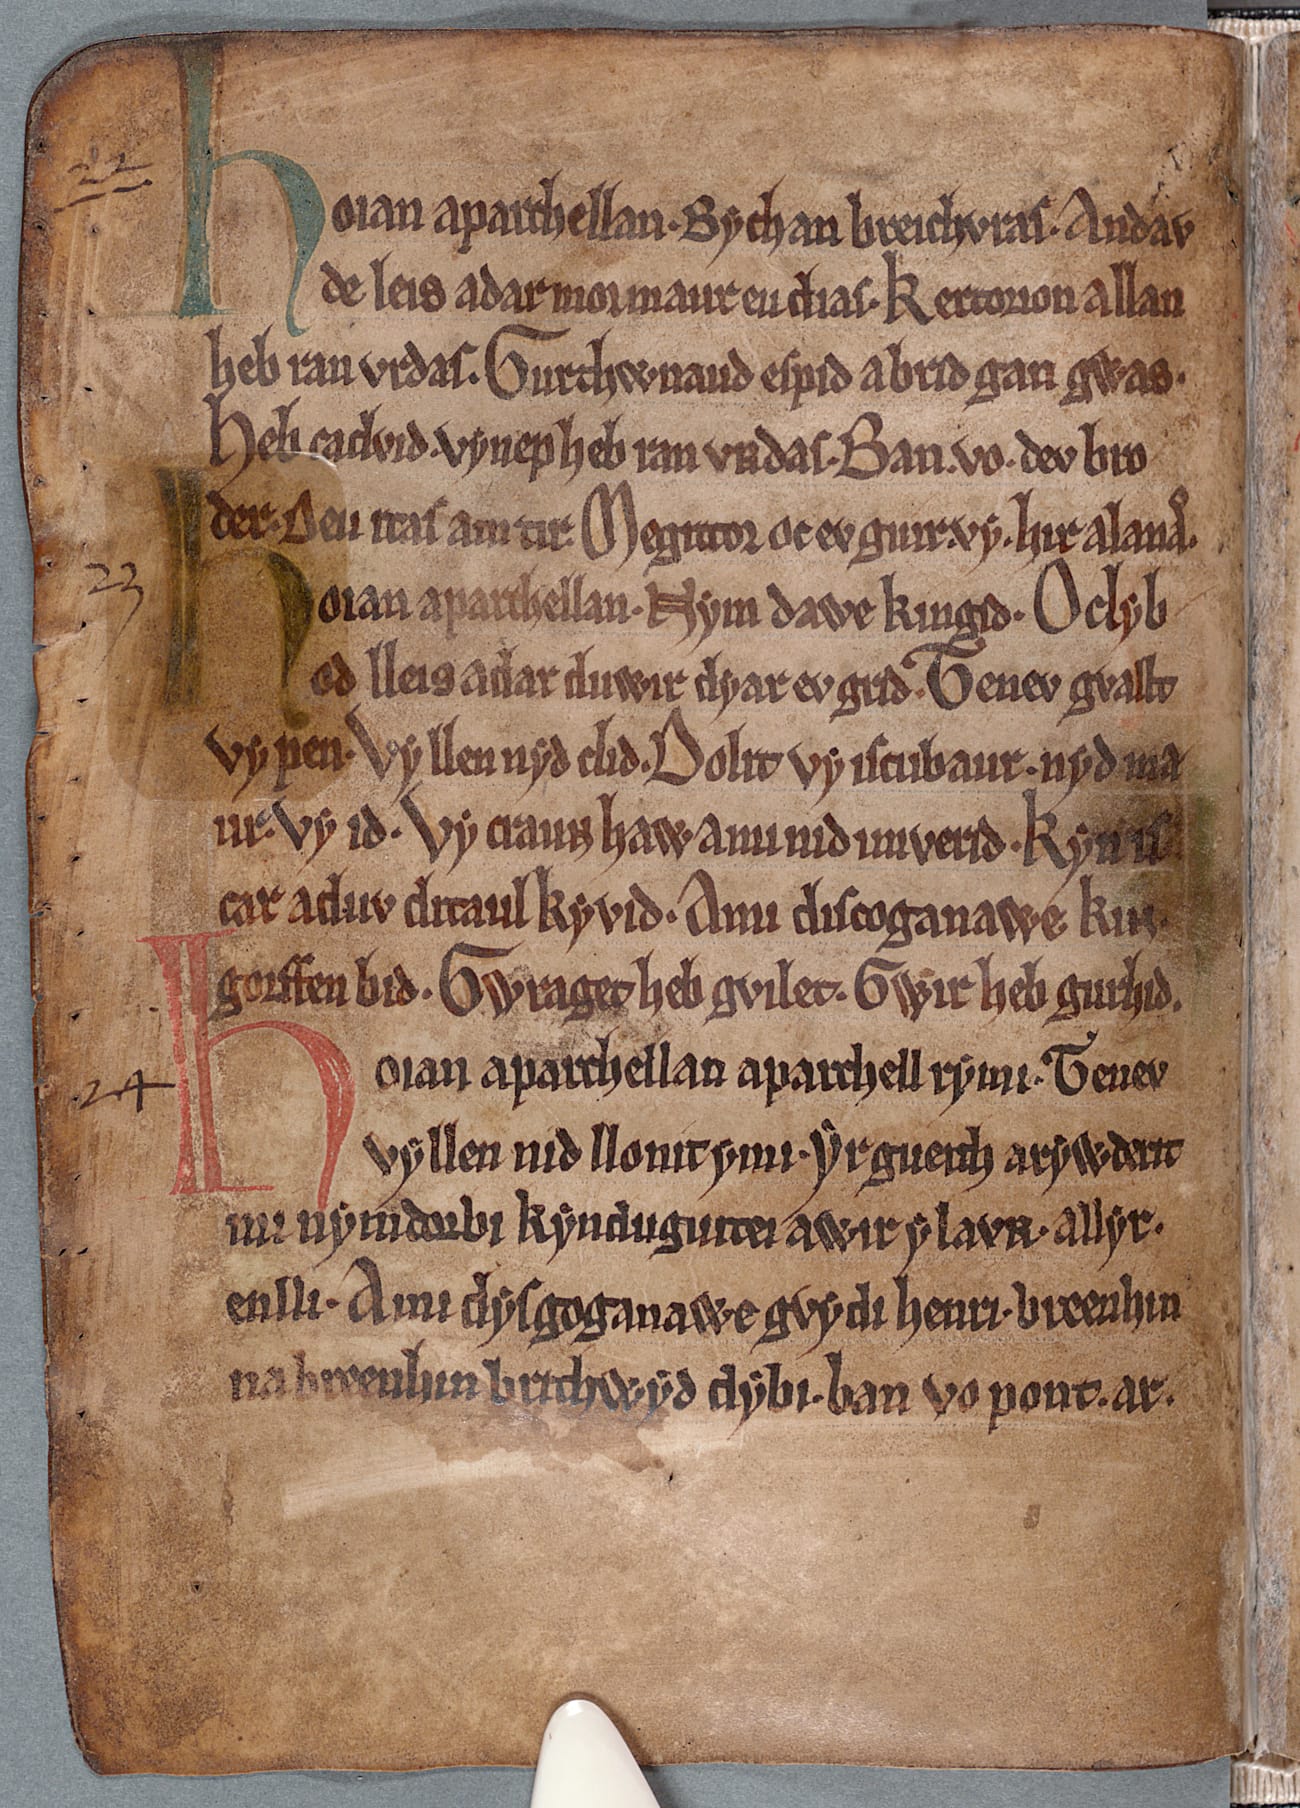 22
hoian aparchellan. Bychan breichvras. Andav
de leis adar mor maur eu dias. Kertorion allan
heb ran vrdas. Gurthwnaud espid abrid gan gwas.
Heb cadvid. vynep heb ran vrdas. Ban. vo. dev bro
der. Deu itas am tir. Megittor oc ev guir. vy. hir alanas.
23
hoian aparchellan. Nym dawe kingid. O clyb
od lleis adar duwir dyar ev grid. Tenev gvallt
vy pen. Vy llen nyd clid. Dolit vy iscubaur. nyd ma
ur. Vy id. Vy craun haw. ami nid imverid. Kyn is
car aduv ditaul kyvid. Ami discoganawe kin.
gorffen bid. Gwraget heb gvilet. Gwir heb gurhid.
24
hoian aparchellan aparchell rymi. Tenev
vy llen nid llonit ymi. Yr gueith arywderit
mi nymdorbi kyn duguitei awir y lavr. allyr.
enlli. Ami dysgoganawe gvydi henri. breenhin
na breenhin brithwyd dybi. ban vo pont. ar.